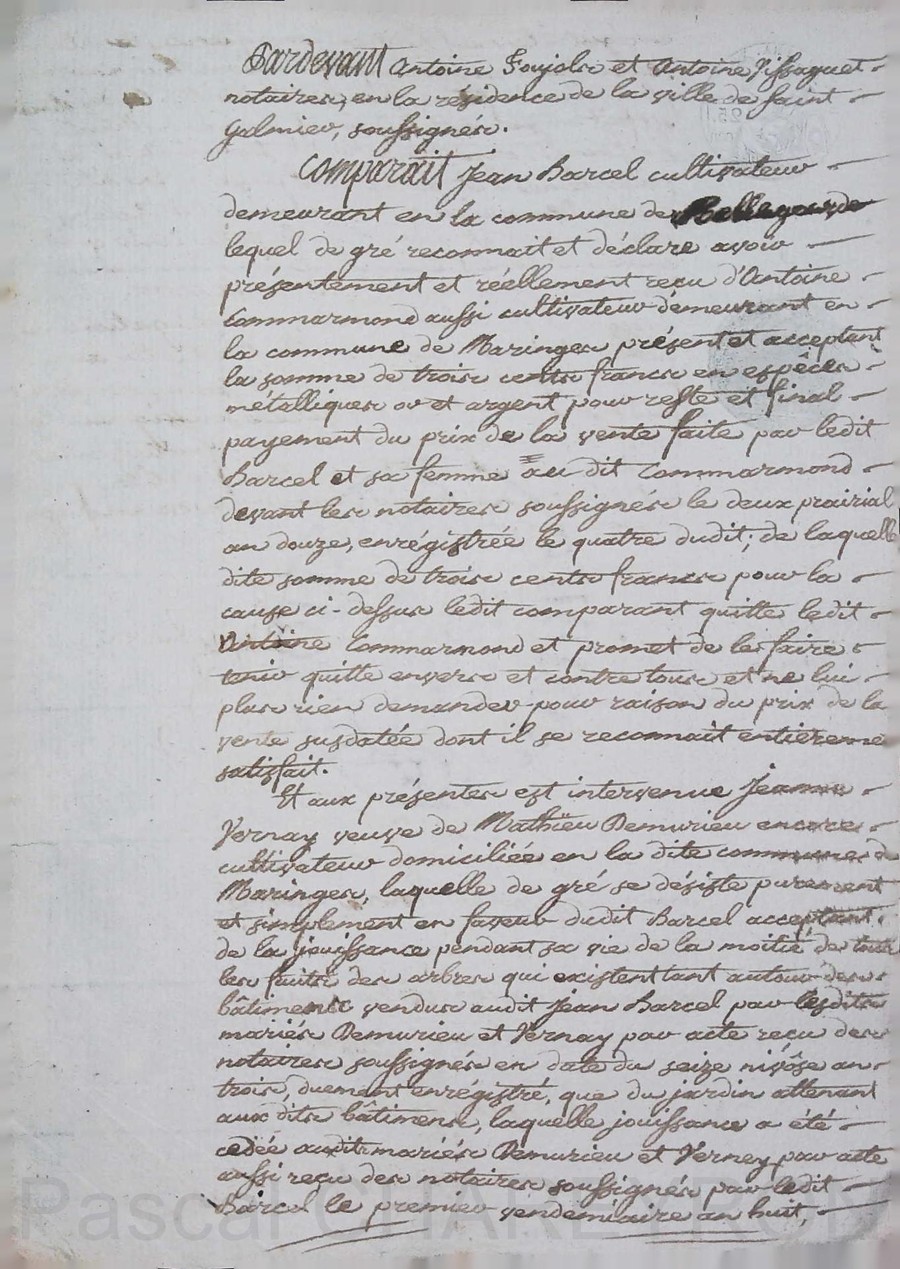 Pardevant Antoine Foujols et Antoine Pissaguet
notaires, en la résidence de la ville de Saint
Galmier, soussignés.
Comparait Jean Barcel cultivateur
demeurant en la commune de Bellegarde
lequel de gré reconnait et déclare avoir
présentement et réellement reçu d'Antoine
Commarmond aussi cultivateur demeurant en
la commune de Maringes présent et acceptant
la somme de trois cents francs en espèces
métalliques or et argent pour reste et final
payement du prix de la vente faite par ledit
Barcel et sa femme au dit Commarmond
devant les notaires soussignés le deux prairial
an douze, enrégistrée le quatre dudit; de laquelle
dite somme de trois cents francs pour la
cause ci-dessus ledit comparant quitte ledit
Antoine Commarmond et promet de le faire
tenir quitte envers et contre tous et ne lui
plus rien demander pour raison du prix de la
vente susdatée dont il se reconnait entiereme
satisfait.
Et aux présentes est intervenue Jeanne
Vernay veuve de Mathieu Demurieu encore
cultivateur domiciliée en la dite commune de
Maringes, laquelle de gré se désiste purement
et simplement en faveur dudit Barcel acceptant
de la jouissance pendant sa vie de la moitié de tous
les fruits des arbres qui existent tant autour des
bâtiments vendus audit Jean Barcel par lesdits
mariés Demurieu et Vernay par acte reçu des
notaires soussignés en date du seize nivôse an
trois, duement enrégistré, que du jardin attenant
aux dits bâtimens, laquelle jouissance a été
cédée auxdits mariés Demurieu et Verney par acte
aussi reçu des notaires soussignés par ledit
Barcel le premier vendemiaire an huit,
Pascal CHARETROD